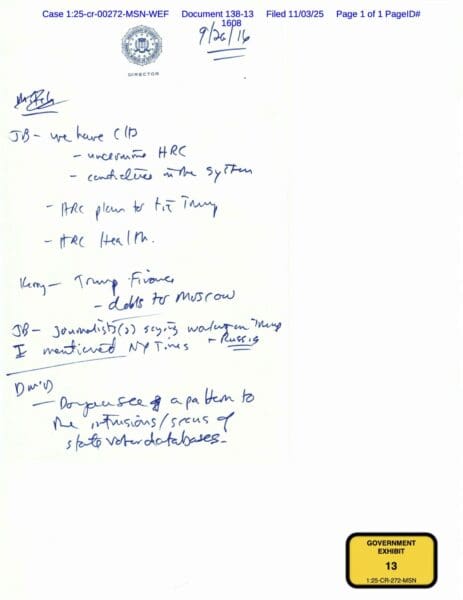 Case 1:25-cr-00272-MSN-WEF Document 138-13 Filed 11/03/25 Page 1 of 1 PageID#
1608
9/26/16
DIRECTOR
JB - we have
- HRC
- in the system
- HRC plan to Trump
- HRC Health.
Kerry - Trump Finance
- debts to Moscow
JB - Journalists(s) saying working on Trump
I mentioned NY Times + Russia
- Do you see a pattern to
the intrusions/scans of
state voter databases.
GOVERNMENT
EXHIBIT
13
1:25-CR-272-MSN